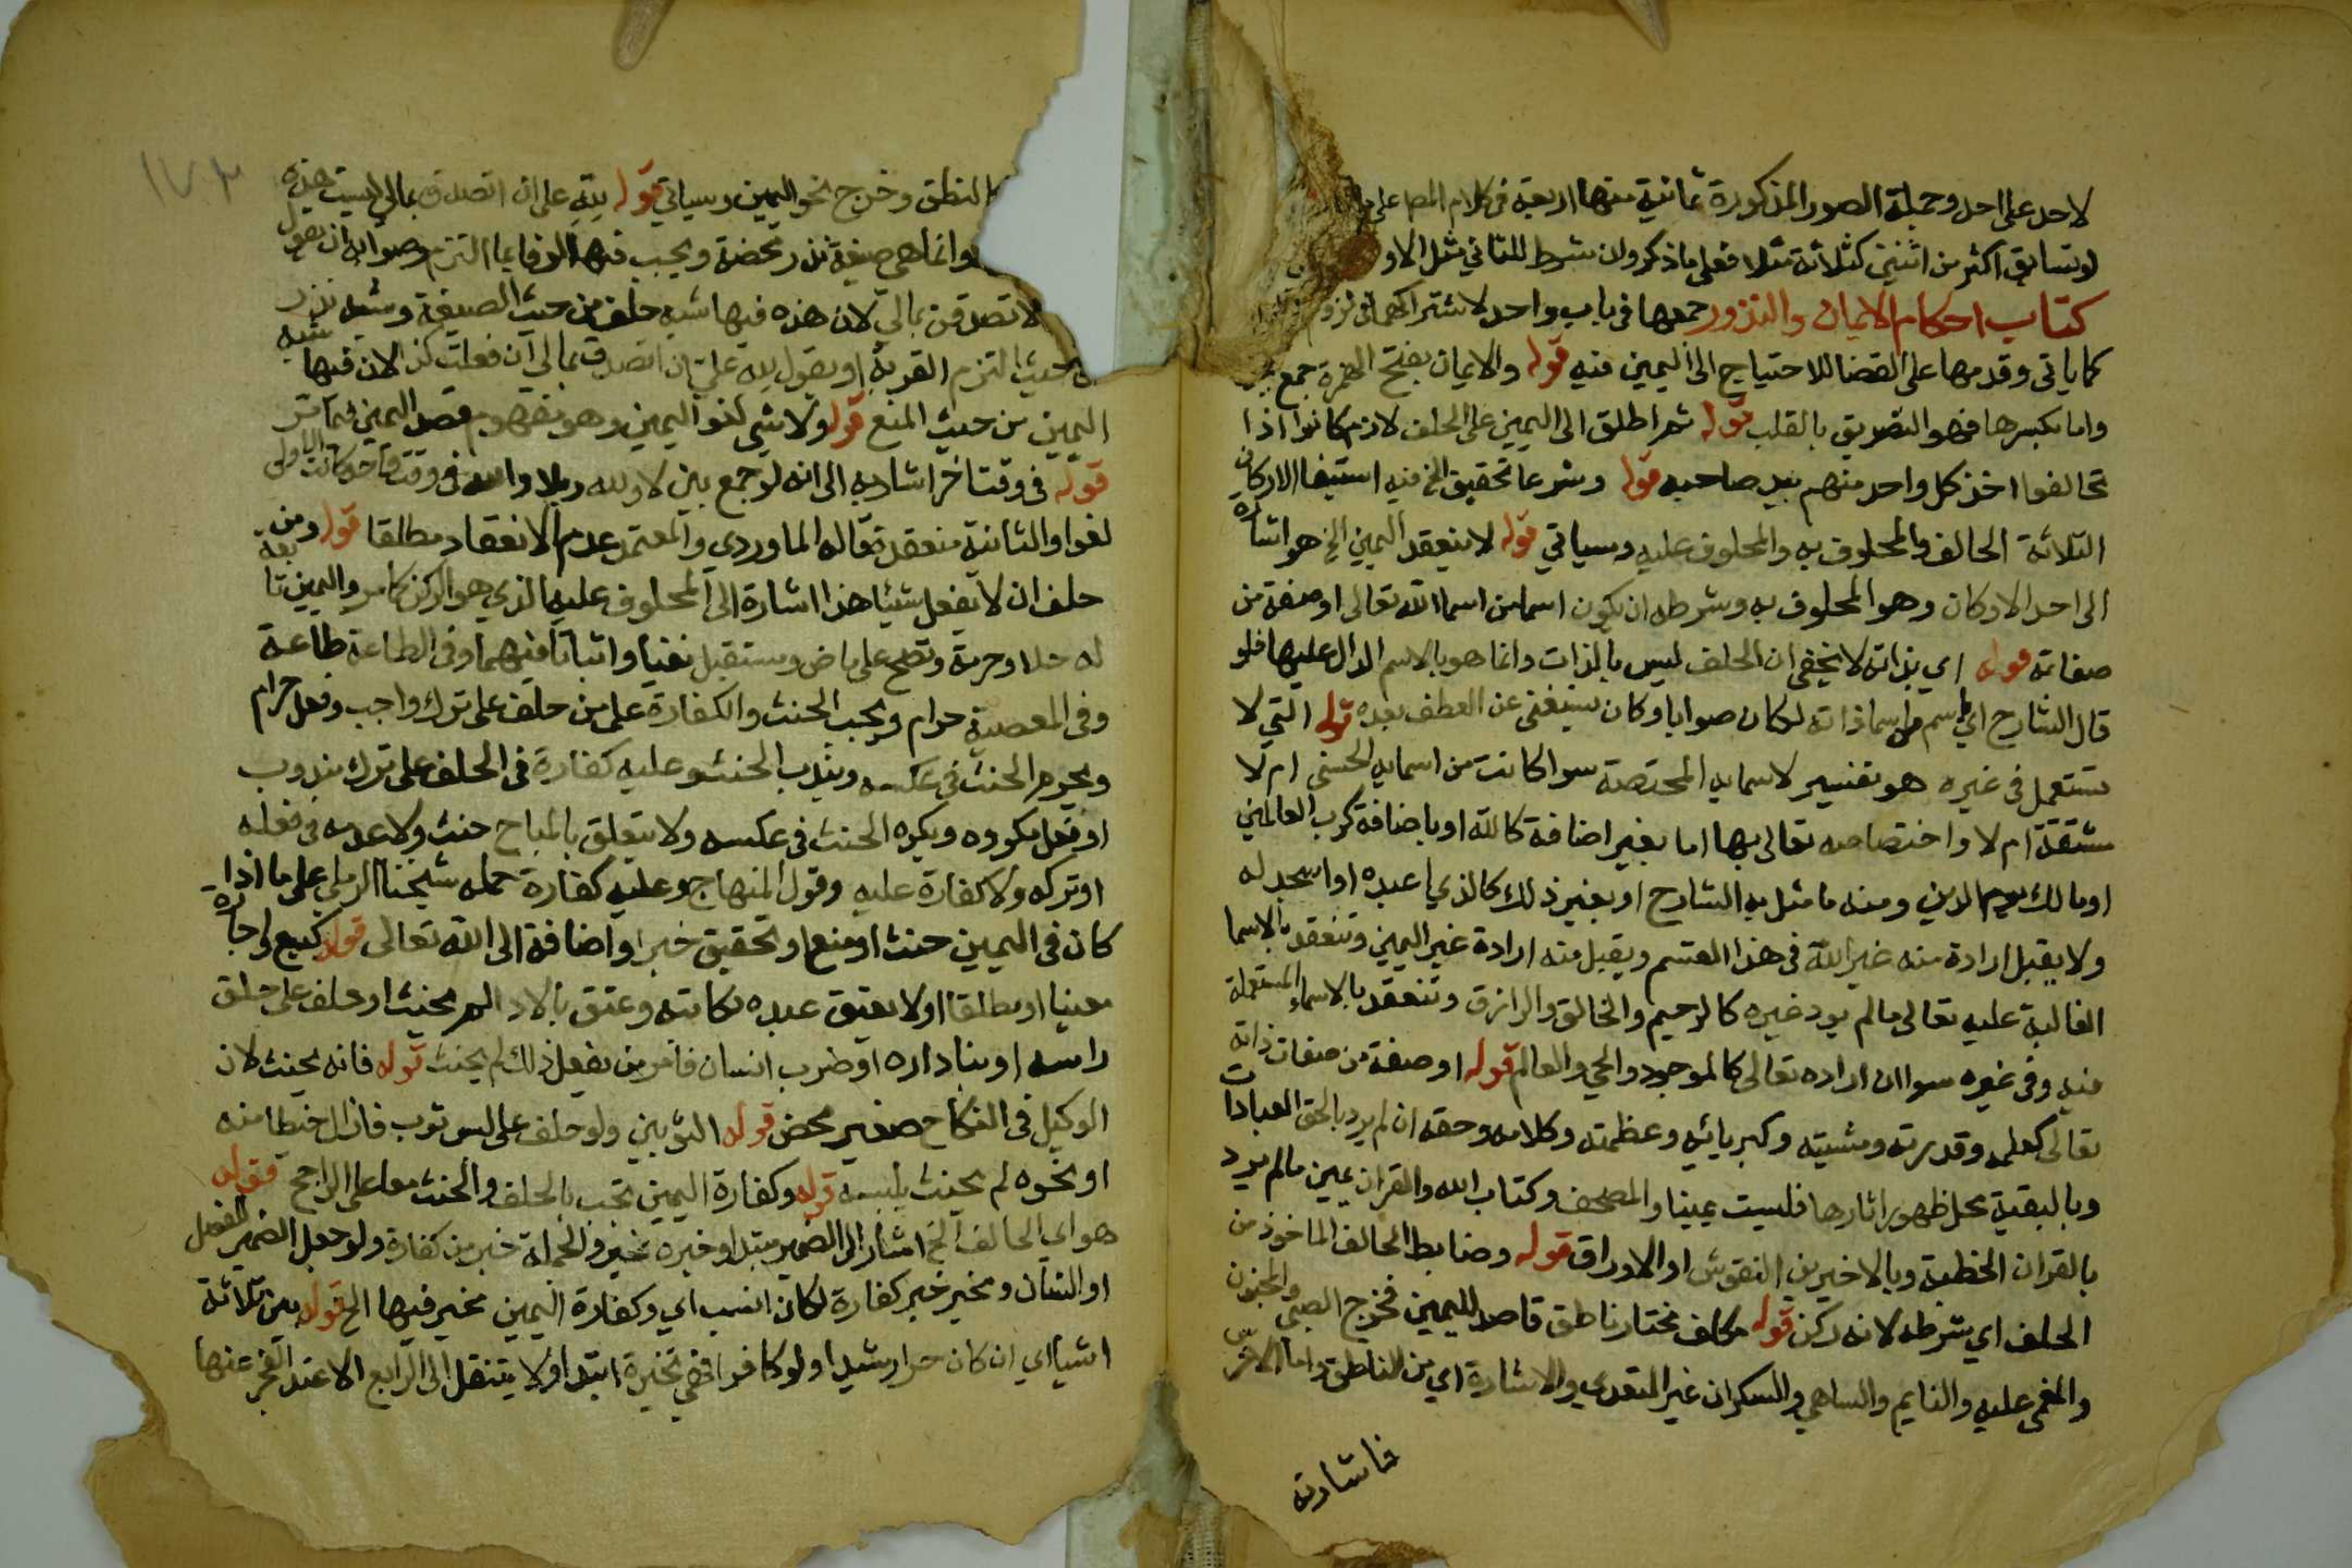 لاحد على احد وجملة الصور المذكورة ثمانية منها اربعة فى كلام المص على
لو تسابق اكثر من اثنين كثلاثة مثلا فعلى ما ذكر ولن شرط للثاني مثل الاو
كتاب احكام الايمان والنذور جمعها فى باب واحد لاشتراكهما فى لزوم
كما ياتى وقدمها على القضا للاحتياج الى اليمين فيه قوله والايمان بفتح الهمزة جمع
واما بكسرها فهو التصديق بالقلب قوله ثم اطلق الى اليمين على الحلف لانهم كانوا اذا
تحالفوا اخذ كل واحد منهم بيد صاحبه قوله وشرعا تحقيق الخ فيه استيفا الاركان
الثلاثة الحالف والمحلوف به والمحلوف عليه وسياتي قوله لا ينعقد اليمين الخ هو اشارة
الى احد الاركان وهو المحلوف به وشرطه ان يكون اسما من اسما الله تعالى او صفة من
صفاته قوله اي بذاته لا يخفى ان الحلف ليس بالذات وانما هو بالاسم الدال عليها فلو
قال الشارح اي باسم من اسما ذاته لكان صوابا وكان يستغنى عن العطف بعده قوله التي لا
تستعمل فى غيره هو تفسير لاسمايه المختصة سوا كانت من اسمايه الحسنى ام لا
مشتقة ام لا واختصاصه تعالى بها اما بغير اضافة كالله او باضافة كرب العالمين
او مالك يوم الدين ومنه ما مثل به الشارح او بغير ذلك كالذي اعبده او اسجد له
ولا يقبل ارادة منه غير الله فى هذا القسم ويقبل منه ارادة غير اليمين وتنعقد بالاسما
الغالبة عليه تعالى مالم يرد غيره كالرحيم والخالق والرازق وتنعقد بالاسماء المستعملة
فيه وفى غيره سوا ان اراده تعالى كالموجود والحي والعالم قوله او صفة من صفات ذاته
تعالى كعلمه وقدرته ومشيته وكبريائه وعظمته وكلامه وحقه ان لم يرد بالحق العبادات
وبالبقية محل ظهور اثارها فليست يمينا والمصحف وكتاب الله والقران يمين مالم يرد
بالقران الخطبة وبالاخيرين النقوش او الاوراق قوله وضابط الحالف الماخوذ من
الحلف اي شرطه لانه ركن قوله مكلف مختار ناطق قاصد لليمين فخرج الصبى والمجنون
والمغمى عليه والنايم والساهي والسكران غير المتعدي والاشارة اي من الناطق واما الاخرس
فاشارته
١٧٣
النطق وخرج نحو اليمين وسياتي قوله لله على ان اتصدق بمالي ليست هذه
وانما هى صيغة نذر محضة ويجب فيها الوفا بما التزم وصوابه ان يقول
لاتصدقن بمالي لان هذه فيها شبه حلف من حيث الصيغة وشبه نذر
حيث التزم القربة او يقول لله علي ان اتصدق بمالي ان فعلت كذا لان فيها شبه
اليمين من حيث المنع قوله ولا شي لغو اليمين وهو مفهوم قصد اليمين فيما مر
قوله فى وقت اخر اشار به الى انه لو جمع بين لا والله وبلا والله فى وقت واحد كانت الاولى
لغوا والثانية منعقدة قاله الماوردي والمعتمد عدم الانعقاد مطلقا قوله ومن
حلف ان لا يفعل شيئا هذا اشارة الى المحلوف عليه الذي هو الركن كما مر واليمين تابعة
له حلا وحرمة وتصح على ماض ومستقبل نفيا واثباتا فيهما وفى الطاعة طاعة
وفى المعصية حرام ويجب الحنث والكفارة على من حلف على ترك واجب وفعل حرام
ويحرم الحنث فى عكسه ويندب الحنث وعليه كفارة فى الحلف على ترك مندوب
او فعل مكروه ويكره الحنث فى عكسه ولا يتعلق بالمباح حنث ولا عدمه فى فعله
او تركه ولا كفارة عليه وقول المنهاج وعليه كفارة حمله شيخنا الرملي على ما اذا
كان فى اليمين حنث او منع او تحقيق خبر او اضافة الى الله تعالى قوله كبيع او اجارة
معينا او مطلقا اولا يعتق عبده فكاتبه وعتق بالادا لم يحنث او حلف على حلق
راسه او بنا داره او ضرب انسان فامر من يفعل ذلك لم يحنث قوله فانه يحنث لان
الوكيل فى النكاح صغير محض قوله الثوبين ولو حلف على لبس ثوب فازال خيطا منه
او نحوه لم يحنث بلبسه قوله وكفارة اليمين تجب بالحلف والحنث معا على الراجح قوله
هو اي الحالف الخ اشار الى الضمير مبتدا وخبره مخير والجملة خبر من كفارة ولو جعل الضمير للفصل
او الشان ومخير خبر كفارة لكان انسب اي وكفارة اليمين مخير فيها الخ قوله بين ثلاثة
اشيا اي ان كان حرا رشيدا ولو كافرا فهي مخيرة ابتدا ولا ينتقل الى الرابع الا عند العجز عنها